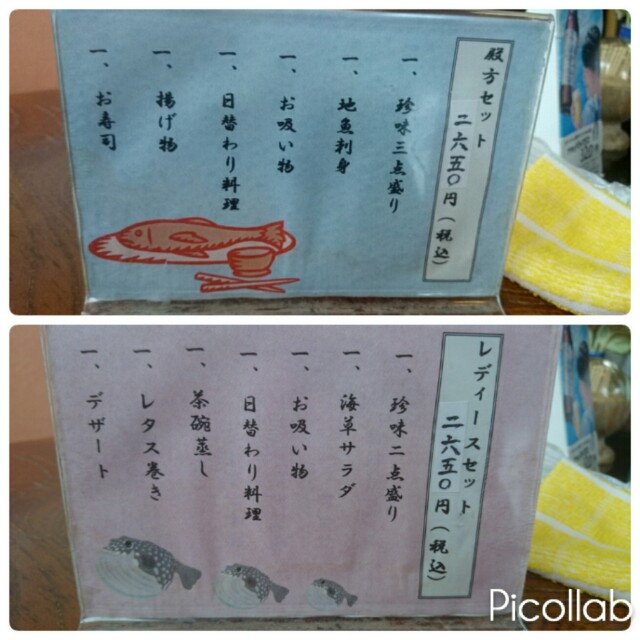 殿方セット
二六五〇円(税込)
一、珍味三点盛り
一、地魚刺身
一、お吸い物
一、日替わり料理
一、揚げ物
一、お寿司
レディースセット
二六五〇円(税込)
一、珍味二点盛り
一、海草サラダ
一、お吸い物
一、日替わり料理
一、茶碗蒸し
一、レタス巻き
一、デザート
Picollab